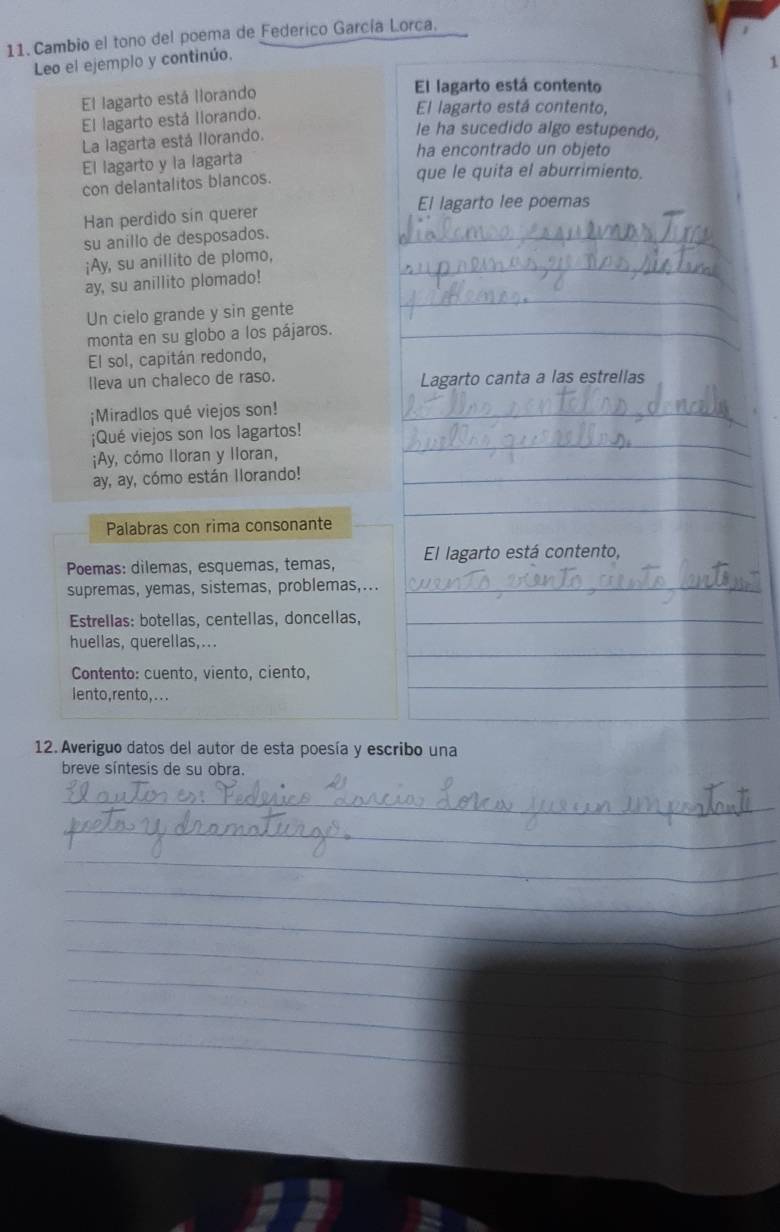 11. Cambio el tono del poema de Federico García Lorca.
Leo el ejemplo y continúo.
1
El lagarto está llorando
El lagarto está llorando.
La lagarta está llorando.
El lagarto y la lagarta
con delantalitos blancos.
Han perdido sin querer
su anillo de desposados.
¡Ay, su anillito de plomo,
ay, su anillito plomado!
Un cielo grande y sin gente
monta en su globo a los pájaros.
El sol, capitán redondo,
lleva un chaleco de raso.
¡Miradlos qué viejos son!
¡Qué viejos son los lagartos!
¡Ay, cómo lloran y lloran,
ay, ay, cómo están llorando!
Palabras con rima consonante
Poemas: dilemas, esquemas, temas,
supremas, yemas, sistemas, problemas,...
Estrellas: botellas, centellas, doncellas,
huellas, querellas,...
Contento: cuento, viento, ciento,
lento,rento,...
El lagarto está contento
El lagarto está contento,
le ha sucedido algo estupendo,
ha encontrado un objeto
que le quita el aburrimiento.
El lagarto lee poemas
Lagarto canta a las estrellas
El lagarto está contento,
cuento, viento, ciento,
12. Averiguo datos del autor de esta poesía y escribo una
breve síntesis de su obra.
El autor es: Federico García Lorca fue un importante
poeta y dramaturgo.